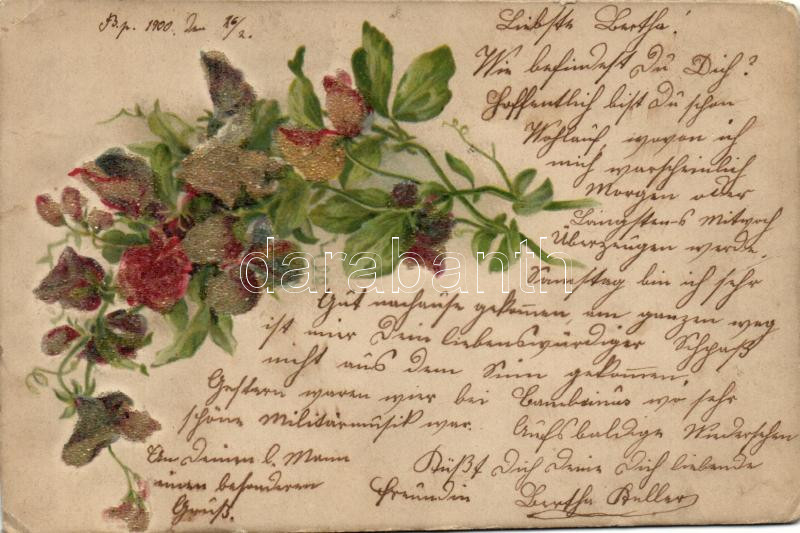 B.p. 1900. den 26/2.
Liebste Bertha!
Wie befindest Du Dich?
Hoffentlich bist Du schon
Wohlauf, wovon ich
mich warscheinlich
Morgen oder
Längstens Mitwoch
Überzeugen werde.
Samstag bin ich sehr
Gut nachause gekommen, am ganzen weg
ist mir Dein liebenswürdiger Schpaß
nicht aus dem Sinn gekommen.
Gestern waren wir bei Gambrinus wo sehr
schöne Militärmusik war. Aufsbaldige Wiedersehen
An Deinen l. Mann
einen besonderen
Gruß.
Küßt Dich Deine Dich liebende
Freundin Bertha Keller
darabanth